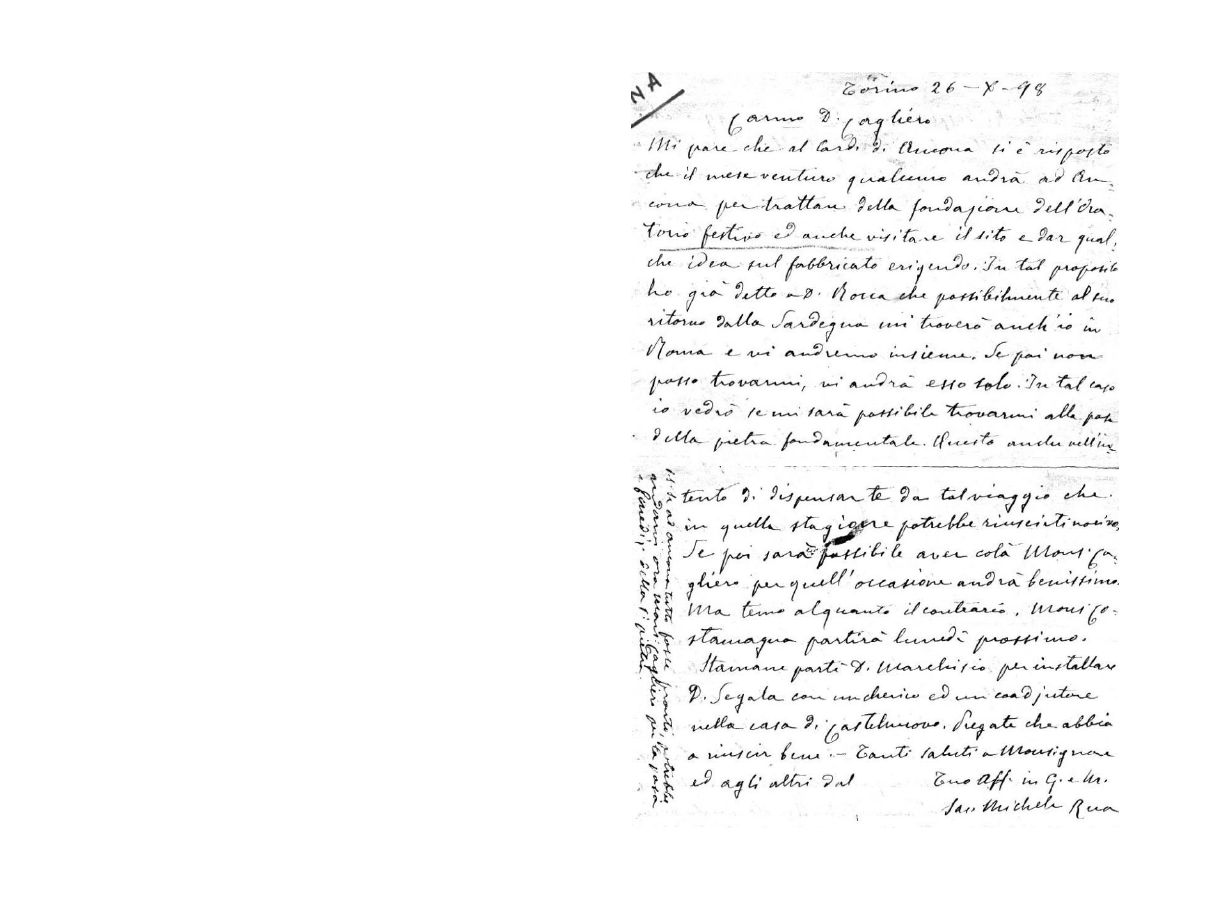 NA
Torino 26-X-98
Carmo D. Cagliero
Mi pare che al Card. di Ancona si è risposto
che il mese venturo qualcuno andrà ad An-
cona per trattare della fondazione dell'Ora-
torio festivo ed anche visitare il sito e dar qual-
che idea sul fabbricato erigendo. In tal proposito
ho già detto a D. Rocca che possibilmente al suo
ritorno dalla Sardegna mi troverò anch'io in
Roma e vi andremo insieme. Se poi non
posso trovarmi, vi andrà esso solo. In tal caso
io vedrò se mi sarà possibile trovarmi alla posa
della pietra fondamentale. Questo anche nell'in-
tento di dispensarte da tal viaggio che
in quella stagione potrebbe riuscirti nocivo.
Se poi sarà possibile aver colà Mons. Ca-
gliero per quell'occasione andrà benissimo.
Ma temo alquanto il contrario. Mons. Co-
stamagna partirà lunedì prossimo.
Stamane partì D. Marchisio per installare
D. Segala con un cherico ed un coadjutore
nella casa di Castelnuovo. Pregate che abbia
a riuscir bene. - Tanti saluti a Monsignore
ed agli altri dal
Tuo Aff. in G. e M.
Sac. Michele Rua
ad Ancona tutto fosse pronto, potrebbe
andarvi ora Mons. Cagliero per la posa
e bened. della pietra